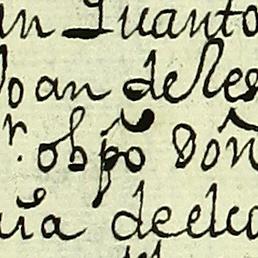 en Quanto
Joan de Res
r. obpõ Don
ua de elco